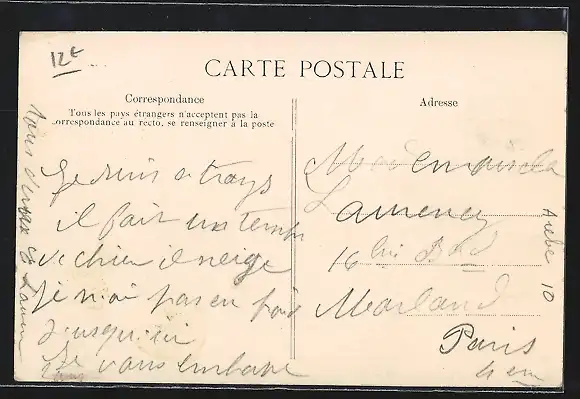 12 e
CARTE POSTALE
Correspondance
Tous les pays étrangers n'acceptent pas la
correspondance au recto, se renseigner à la poste
Je suis a troys
il fait un temps
de chien il neige
je n'ai pas eu froid
jusqu'ici
Je vous embrasse
Adresse
Mademoiselle
16 bis Bld
Morland
Paris
4 em
Aube 10